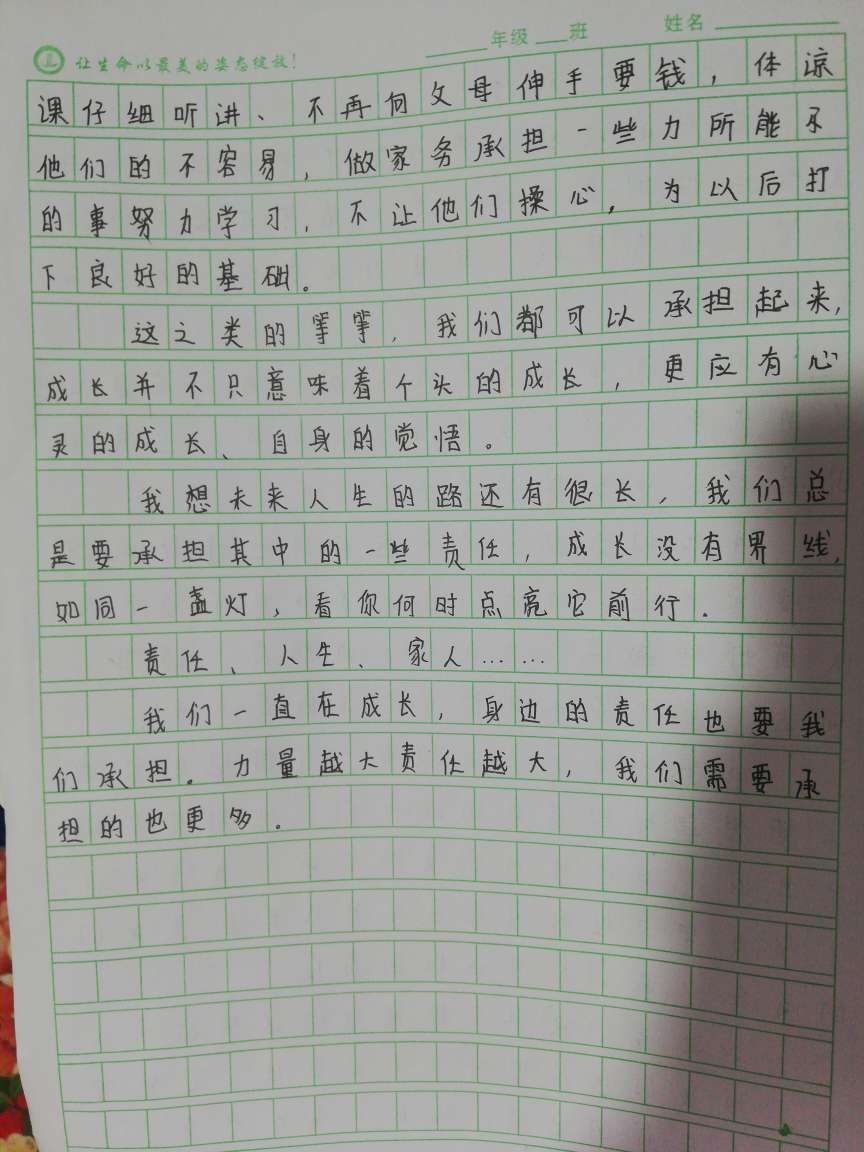 让生命以最美的姿态绽放!
年级 班 姓名
课仔细听讲、不再向父母伸手要钱，体谅
他们的不容易，做家务承担一些力所能及
的事努力学习，不让他们操心，为以后打
下良好的基础。
这之类的等等，我们都可以承担起来，
成长并不只意味着个头的成长，更应有心
灵的成长、自身的觉悟。
我想未来人生的路还有很长，我们总
是要承担其中的一些责任，成长没有界线，
如同一盏灯，看你何时点亮它前行.
责任、人生、家人……
我们一直在成长，身边的责任也要我
们承担。力量越大责任越大，我们需要承
担的也更多。